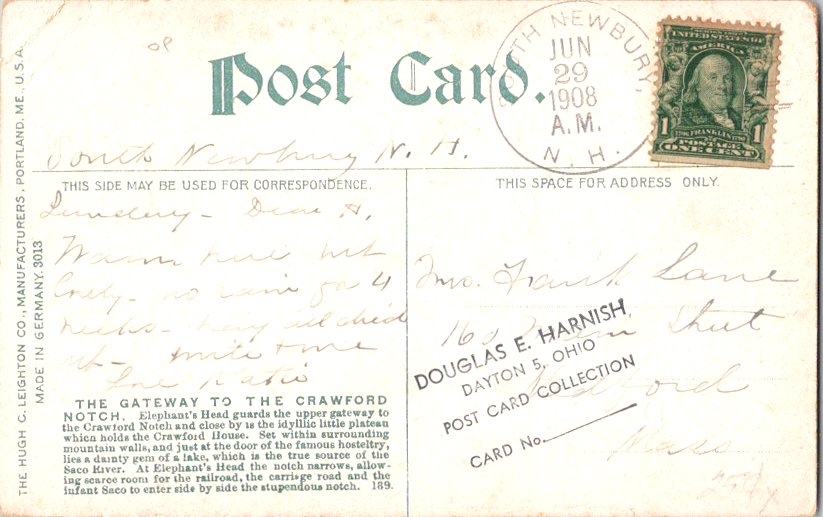 Post Card.
SOUTH NEWBURY,
JUN
29
1908
A.M.
N. H.
UNITED STATES OF
AMERICA
1 FRANKLIN 1
POSTAGE
ONE CENT
South Newbury N. H.
THIS SIDE MAY BE USED FOR CORRESPONDENCE.
Dear H.
Warm here but
lovely - no rain for 4
weeks - hay all dried
up - write me
Love Katie
THE GATEWAY TO THE CRAWFORD
NOTCH. Elephant's Head guards the upper gateway to
the Crawford Notch and close by is the idyllic little plateau
which holds the Crawford House. Set within surrounding
mountain walls, and just at the door of the famous hosteltry,
lies a dainty gem of a lake, which is the true source of the
Saco River. At Elephant's Head the notch narrows, allow-
ing scarce room for the railroad, the carriage road and the
infant Saco to enter side by side the stupendous notch. 189.
THIS SPACE FOR ADDRESS ONLY.
Mrs. Frank Lane
Street
Medford
Mass
DOUGLAS E. HARNISH,
DAYTON 5, OHIO
POST CARD COLLECTION
CARD No.
THE HUGH C. LEIGHTON CO., MANUFACTURERS, PORTLAND, ME., U.S.A.
MADE IN GERMANY. 3013